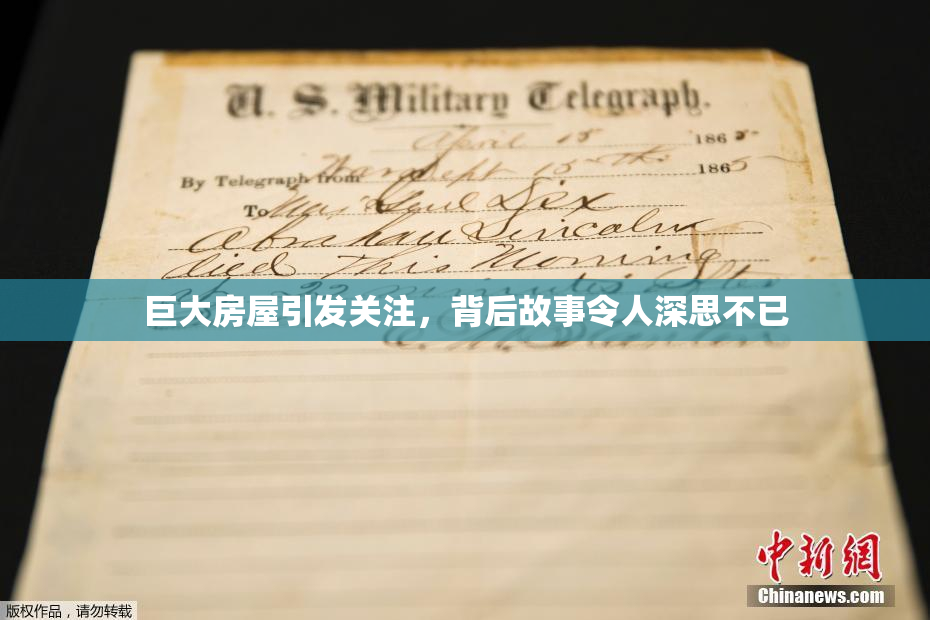 U. S. Military Telegraph.
April 15 1865
By Telegraph from War Dept 15th 1865
To Maj Genl Dix
Abraham Lincoln
died This Morning
22 minutes after
巨大房屋引发关注，背后故事令人深思不已
E. M. Stanton
中新网
Chinanews.com
版权作品，请勿转载